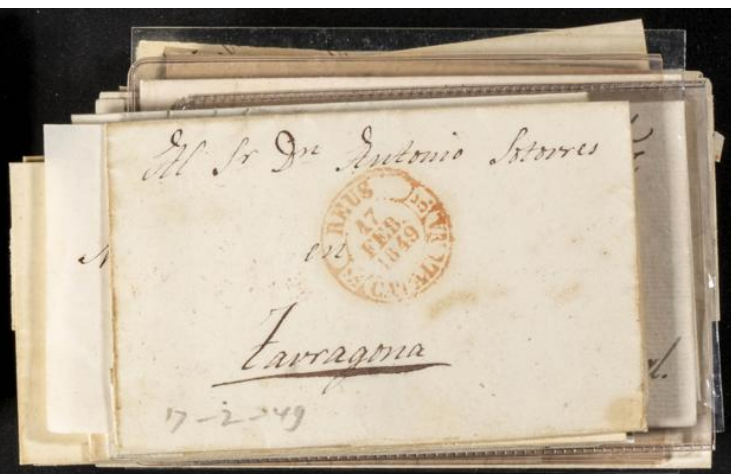 Al Sr Dn Antonio Sotorres
REUS
17
FEB.
1849
CATAL
en
Tarragona
17-2-49